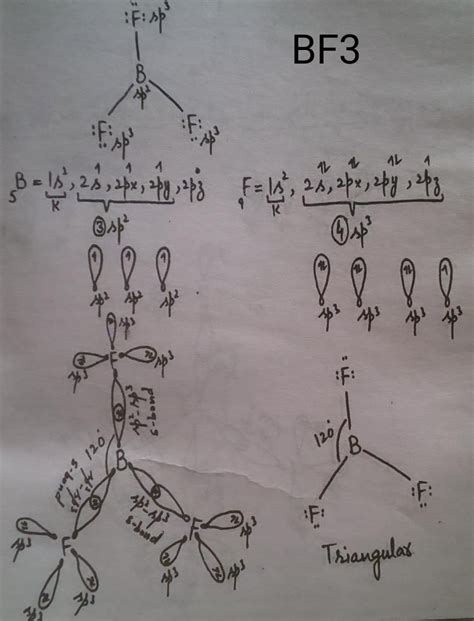 :F: sp3
BF3
B
sp2
:F: sp3
:F: sp3
5B = 1s2, 2s, 2px, 2py, 2pz
K
③ sp2
9F = 1s2, 2s, 2px, 2py, 2pz
K
④ sp3
sp2 sp2 sp2
sp3 sp3 sp3 sp3
sp3
sp3 F sp3
sp2-sp3
s-bond
120°
B
sp2-sp3
s-bond
sp2-sp3
s-bond
sp3 F sp3 sp3
sp3 F sp3 sp3
:F:
120°
B
:F: :F:
Triangular